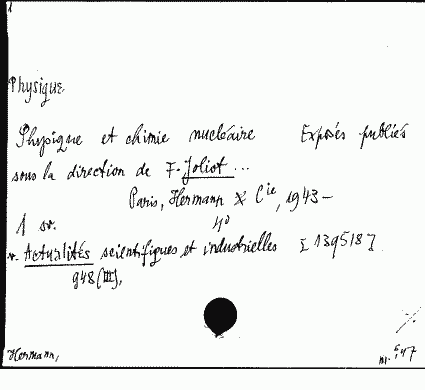 Physique
Physique et chimie nucléaire Exposés publiés
sous la direction de F. Joliot ...
Paris, Hermann & Cie, 1943-
1 sv. 4º
v. Actualités scientifiques et industrielles [139518].
948 (III),
Hermann,